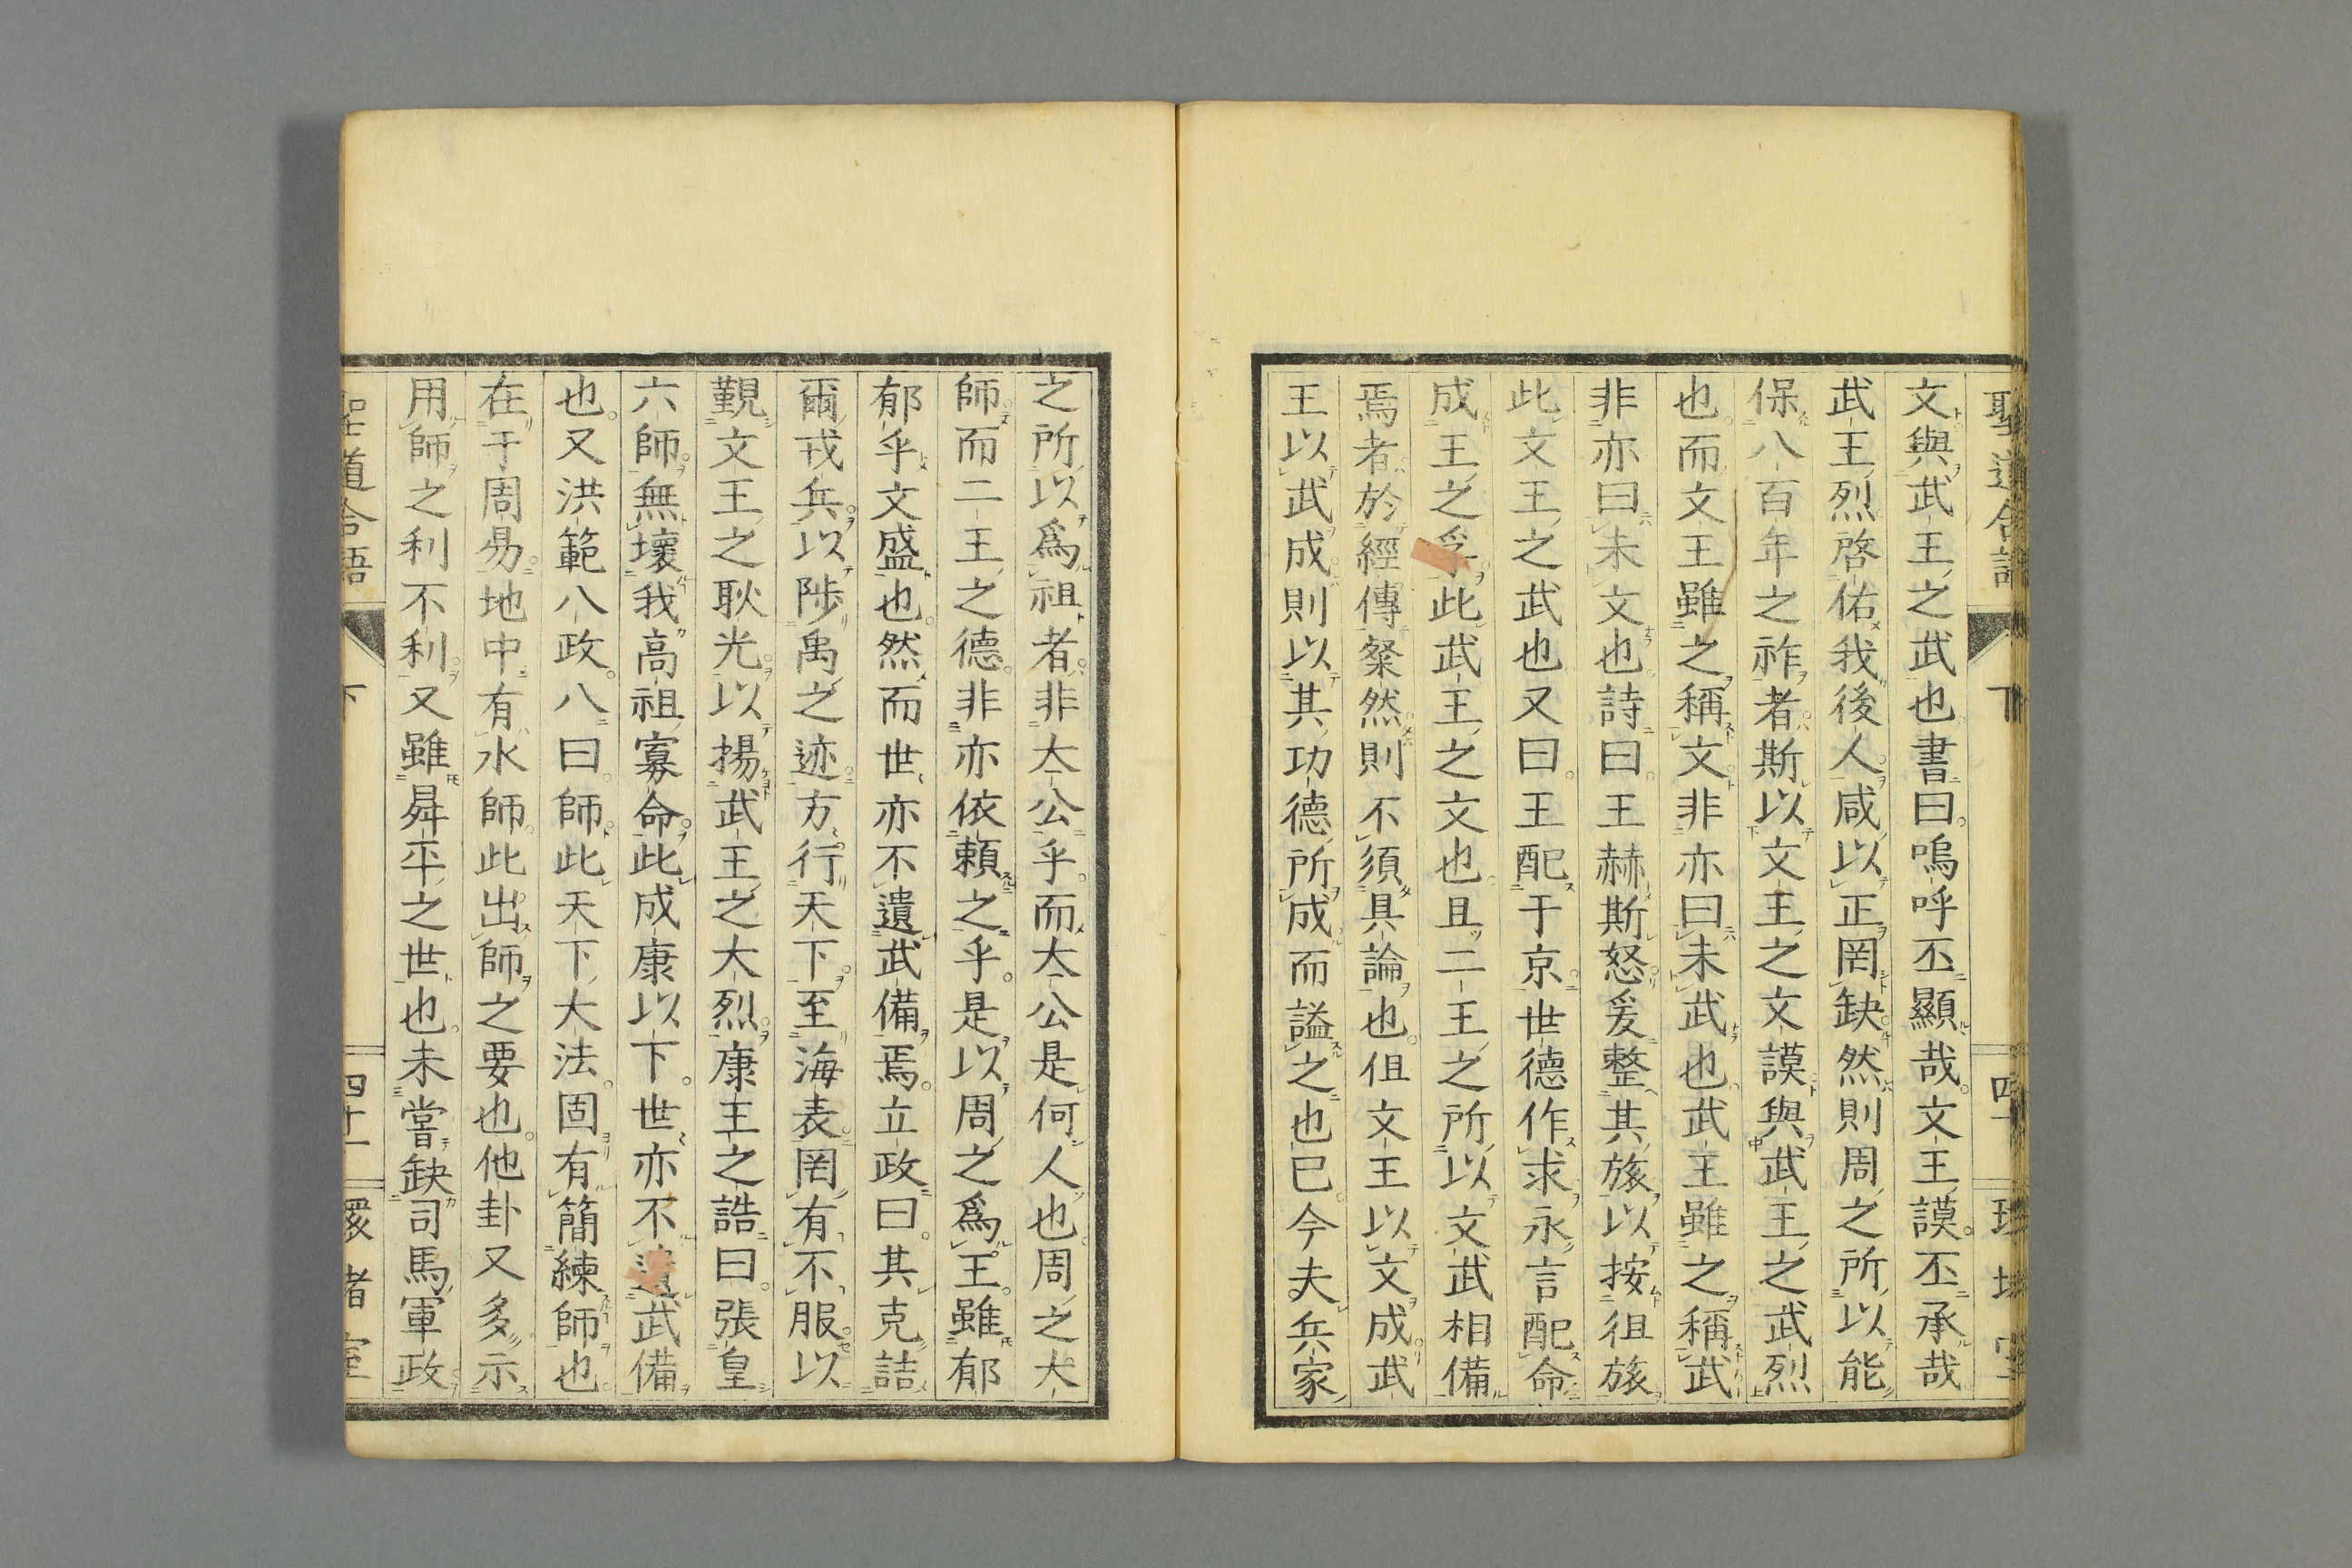 文與武王之武也書曰嗚呼丕顯哉文王謨丕承哉
武王烈啓佑我後人咸以正罔缺然則周之所以能
保八百年之祚者斯以文王之文謨與武王之武烈
也而文王雖之稱文非亦曰未武也武王雖之稱武
非亦曰未文也詩曰王赫斯怒爰整其旅以按徂旅
此文王之武也又曰王配于京世德作求永言配命
成王之孚此武王之文也且二王之所以文武相備
焉者於經傳粲然則不須具論也但文王以文成武
王以武成則以其功德所成而謚之也已今夫兵家
之所以爲祖者非大公乎而大公是何人也周之大
師而二王之德非亦依賴之乎是以周之爲王雖郁
郁乎文盛也然而世亦不遺武備焉立政曰其克詰
爾戎兵以陟禹之迹方行天下至海表罔有不服以
覲文王之耿光以揚武王之大烈康王之誥曰張皇
六師無壞我高祖寡命此成康以下世亦不遺武備
也又洪範八政八曰師此天下大法固有簡練師也
在于周易地中有水師此出師之要也他卦又多示
用師之利不利又雖曻平之世也未嘗缺司馬軍政
聖道合語 下 四十一